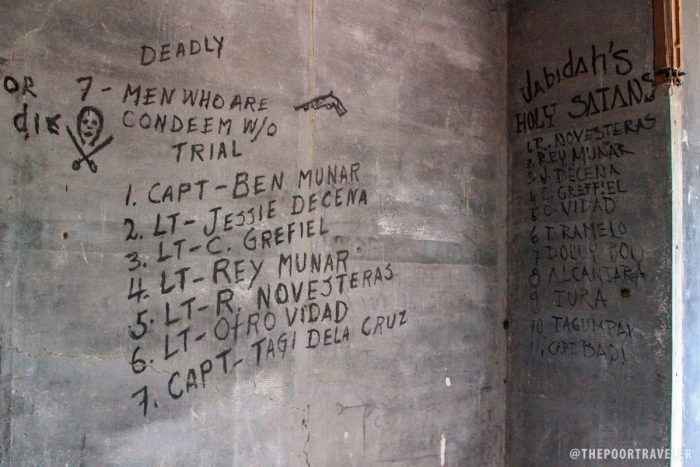 DEADLY
OR 7- MEN WHO ARE
die CONDEEM W/O
TRIAL
1. CAPT-BEN MUNAR
2. LT-JESSIE DECENA
3. LT-C. GREFIEL
4. LT-REY MUNAR
5. LT-R. NOVESTERAS
6. LT-OTRO VIDAD
7. CAPT-TAGI DELA CRUZ
Jabidah's
HOLY SATANS
1. R. NOVESTERAS
2 REY MUNAR
3 J. DECENA
4 C. GREFFIEL
5 O. VIDAD
6 T. RAMELO
7 DOLLY
8 ALCANTARA
9 TURA
10 TAGUMPAY
11. CAPT. BADI
@THEPOORTRAVELER